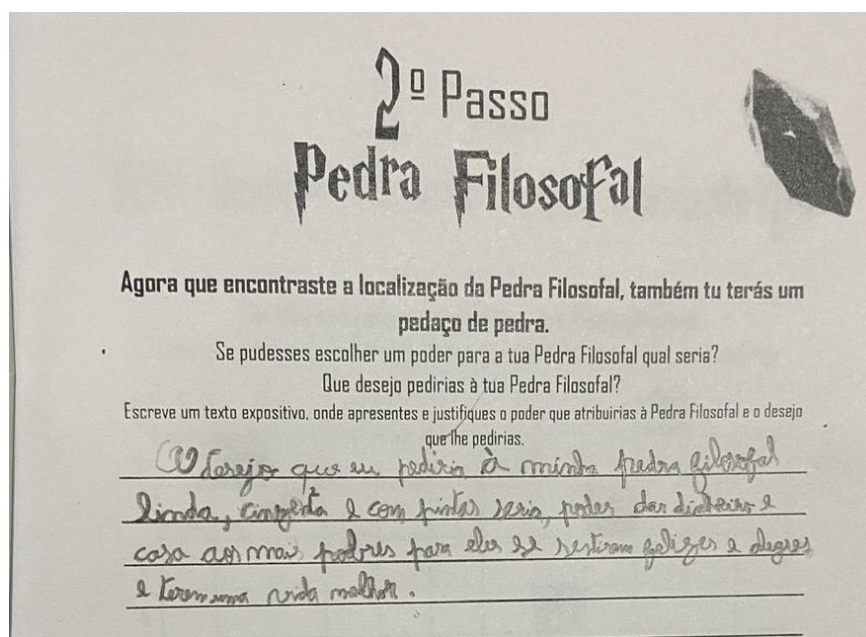 2º Passo
Pedra Filosofal
Agora que encontraste a localização da Pedra Filosofal, também tu terás um
pedaço de pedra.
Se pudesses escolher um poder para a tua Pedra Filosofal qual seria?
Que desejo pedirias à tua Pedra Filosofal?
Escreve um texto expositivo, onde apresentes e justifiques o poder que atribuirias à Pedra Filosofal e o desejo
que lhe pedirias.
O desejo que eu pediria à minha pedra filosofal
linda, cinzenta e com pintas seria, poder dar dinheiro e
casa aos mais pobres para eles se sentiram felizes e alegres
e terem uma vida melhor.